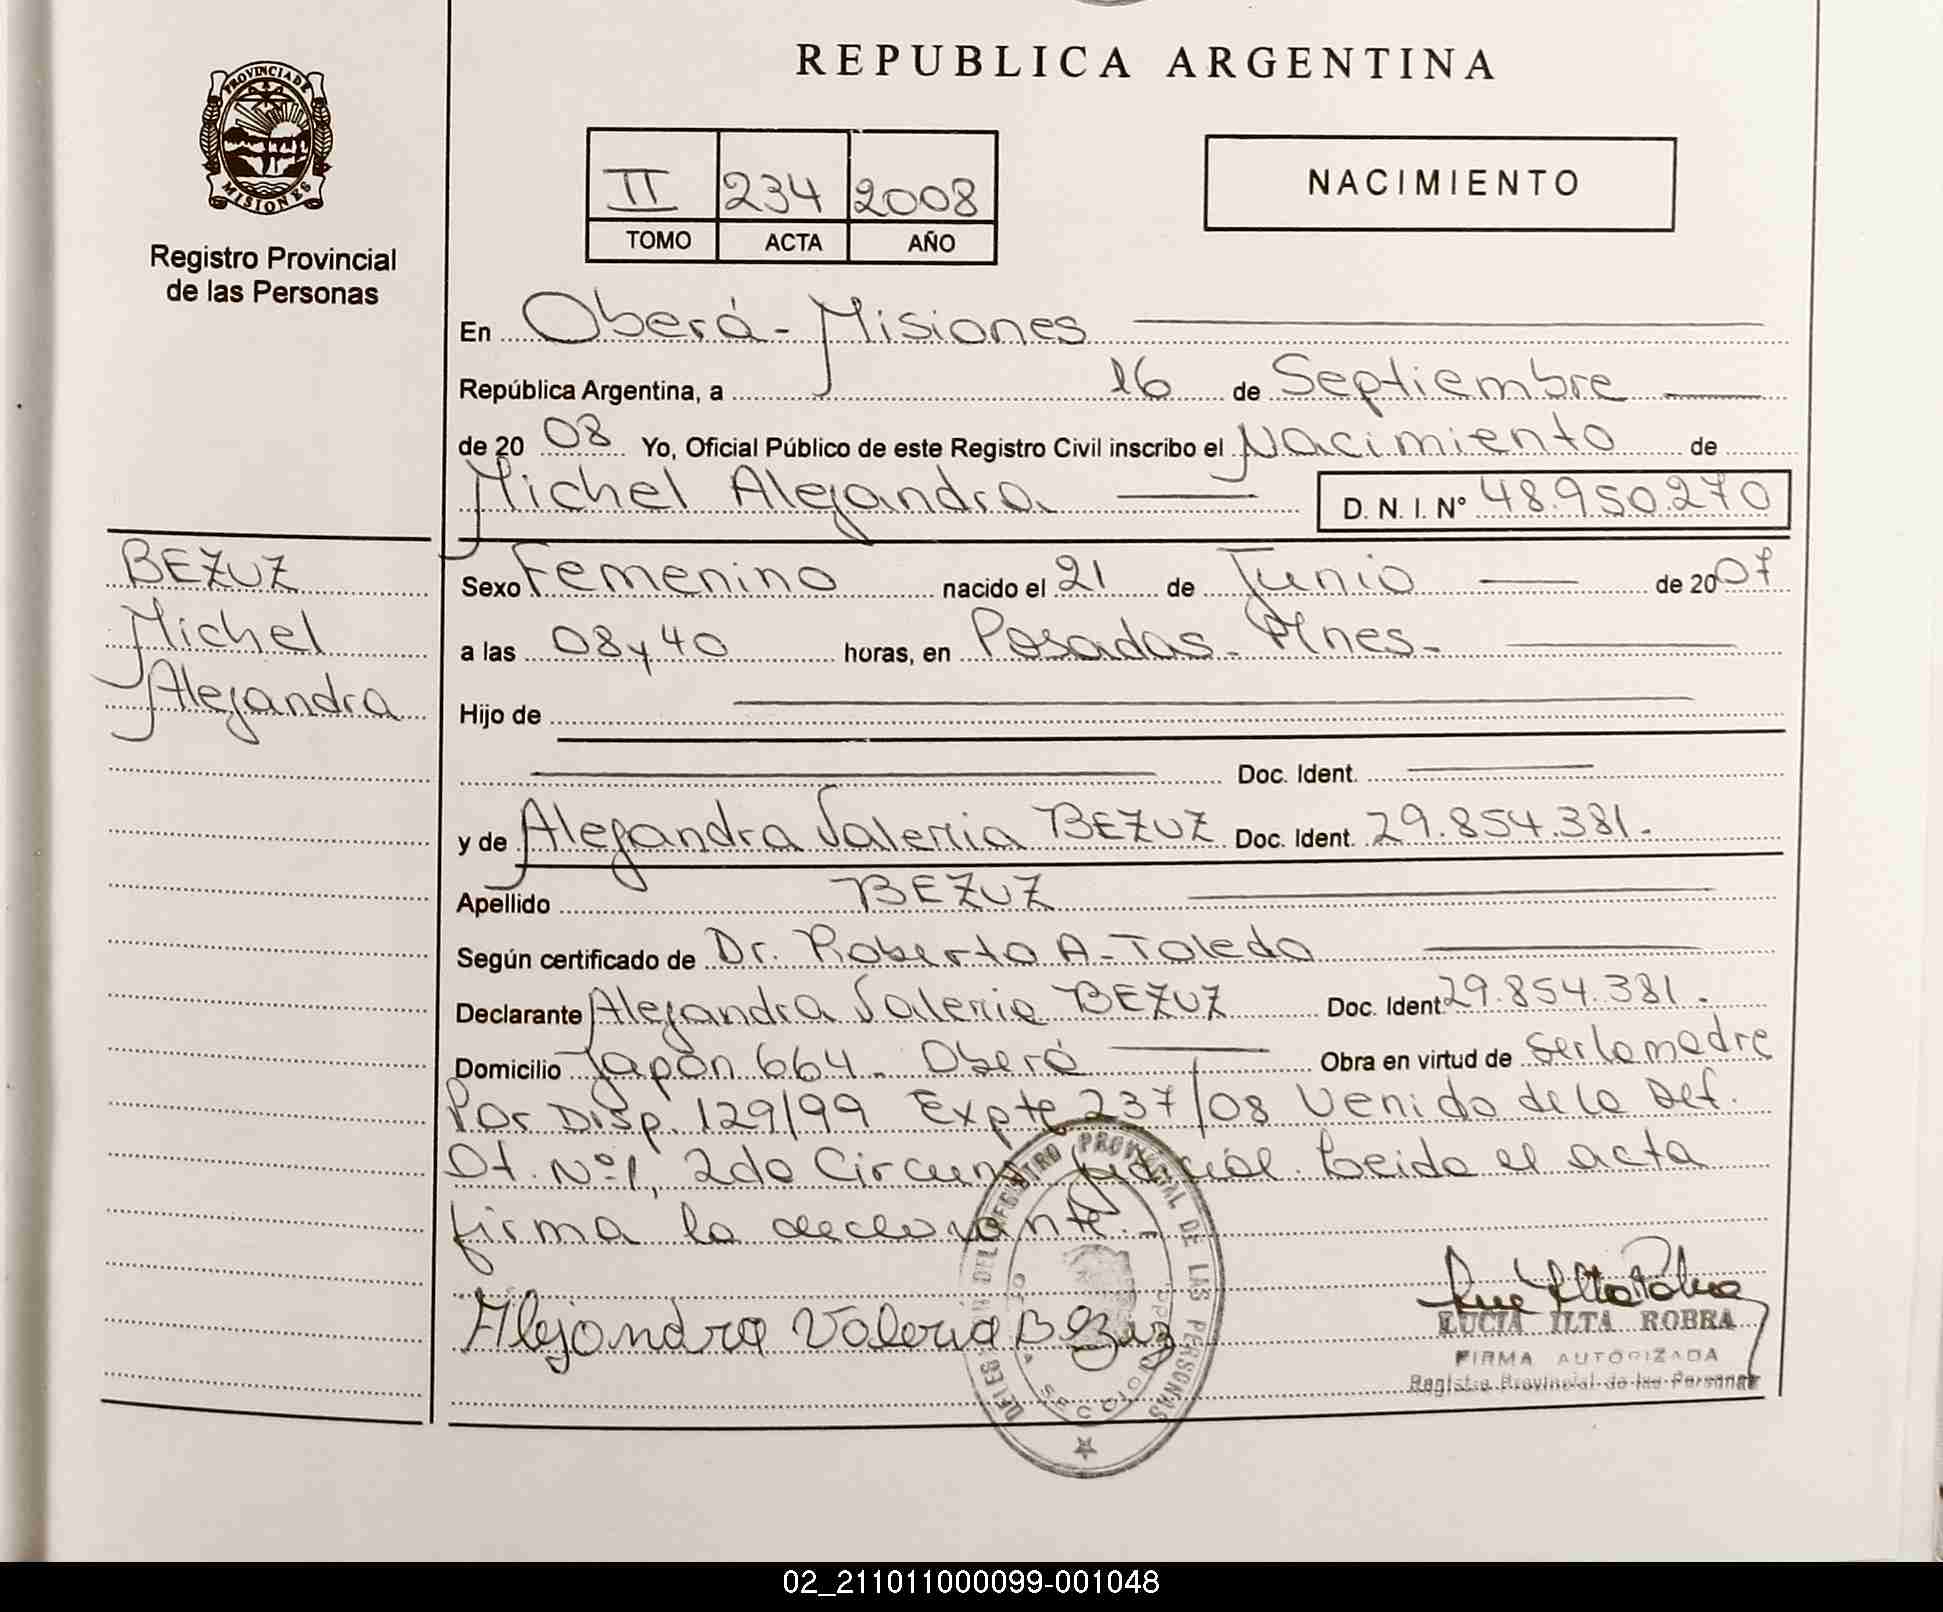 REPUBLICA ARGENTINA
PROVINCIA DE
MISIONES
Registro Provincial
de las Personas
II 234 2008
TOMO ACTA AÑO
NACIMIENTO
En Oberá - Misiones
República Argentina, a 16 de Septiembre
de 20 08 Yo, Oficial Público de este Registro Civil inscribo el Nacimiento de
Michel Alejandra D. N. I. Nº 48.950.270
BEZUZ
Michel
Alejandra
Sexo Femenino nacido el 21 de Junio de 2007
a las 08 y 40 horas, en Posadas - Mnes -
Hijo de
Doc. Ident.
y de Alejandra Valeria BEZUZ Doc. Ident. 29.854.381.
Apellido BEZUZ
Según certificado de Dr. Roberto A. Toledo
Declarante Alejandra Valeria BEZUZ Doc. Ident 29.854.381.
Domicilio Japón 664. Oberá Obra en virtud de ser la madre
Por Disp. 129/99 Expte 237/08 Venido de la Def.
Of. Nº 1, 2da Circuns Judicial. Leida el acta
firma la declarante.-
Alejandra Valeria Bezuz
LUCIA ILTA ROBRA
FIRMA AUTORIZADA
Registro Provincial de las Personas
DEL REGISTRO PROVINCIAL DE LAS PERSONAS
02_211011000099-001048